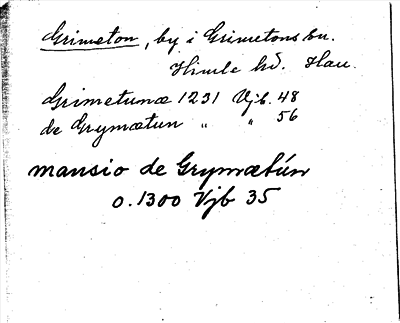 Grimeton, by i Grimetons sn.
Himle hd. Hall.
Grimetunæ 1231 Vjb. 48
de Grymætun " " 56
mansio de Grymætún
o. 1300 Vjb 35